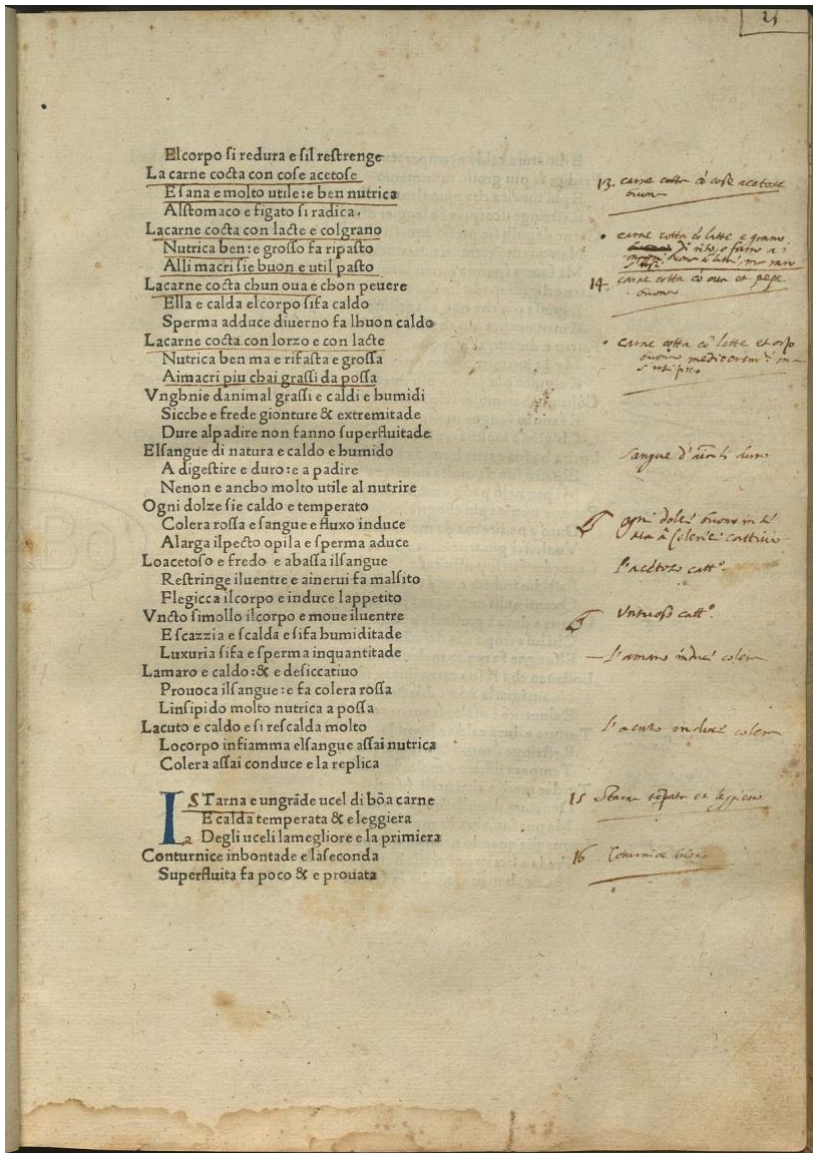 El corpo si redura e sil restrenge
La carne cocta con cose acetose
E sana e molto utile: e ben nutrica
Alstomaco e figato si radica.
Lacarne cocta con lacte e colgrano
Nutrica ben: e grosso fa ripasto
Alli macri sie buon e util pasto
Lacarne cocta chun oua e chon peuere
Ella e calda elcorpo sifa caldo
Sperma adduce diuerno fa lbuon caldo
Lacarne cocta con lorzo e con lacte
Nutrica ben ma e rifasta e grossa
Aimacri piu chai grassi da possa
Vnghnie danimal grassi e caldi e humidi
Sicche e frede gionture & extremitade
Dure alpadire non fanno superfluitade
Elsangue di natura e caldo e humido
A digestire e duro: e a padire
Nenon e ancho molto utile al nutrire
Ogni dolze sie caldo e temperato
Colera rossa e sangue e fluxo induce
Alarga ilpecto opila e sperma aduce
Loacetoso e fredo e abassa ilsangue
Restringe iluentre e ainerui fa malsito
Flegicca ilcorpo e induce lappetito
Vncto simollo ilcorpo e moue iluentre
E scazzia e scalda e sifa humiditade
Luxuria sifa e sperma inquantitade
Lamaro e caldo: & e desiccatiuo
Prouoca ilsangue: e fa colera rossa
Linsipido molto nutrica a possa
Lacuto e caldo e si rescalda molto
Locorpo infiamma elsangue assai nutrica
Colera assai conduce e la replica
L STarna e ungrãde ucel di bõa carne
a E calda temperata & e leggiera
Degli uceli lamegliore e la primiera
Conturnice inbontade e laseconda
Superfluita fa poco & e prouata
13. carne cotta cõ cose acetose
buono
carne cotta cõ latte e grano
14. carne cotta cõ oua et pepe
buono
carne cotta cõ latte et orzo
sangue d' duro
ogni dolce buono
colerici cattiuo
l'acetoso catt.º
Vntuoso catt.º
L'amaro induce colera
l'acuto induce colera
15 Starna et leggiera
16 Coturnice buona